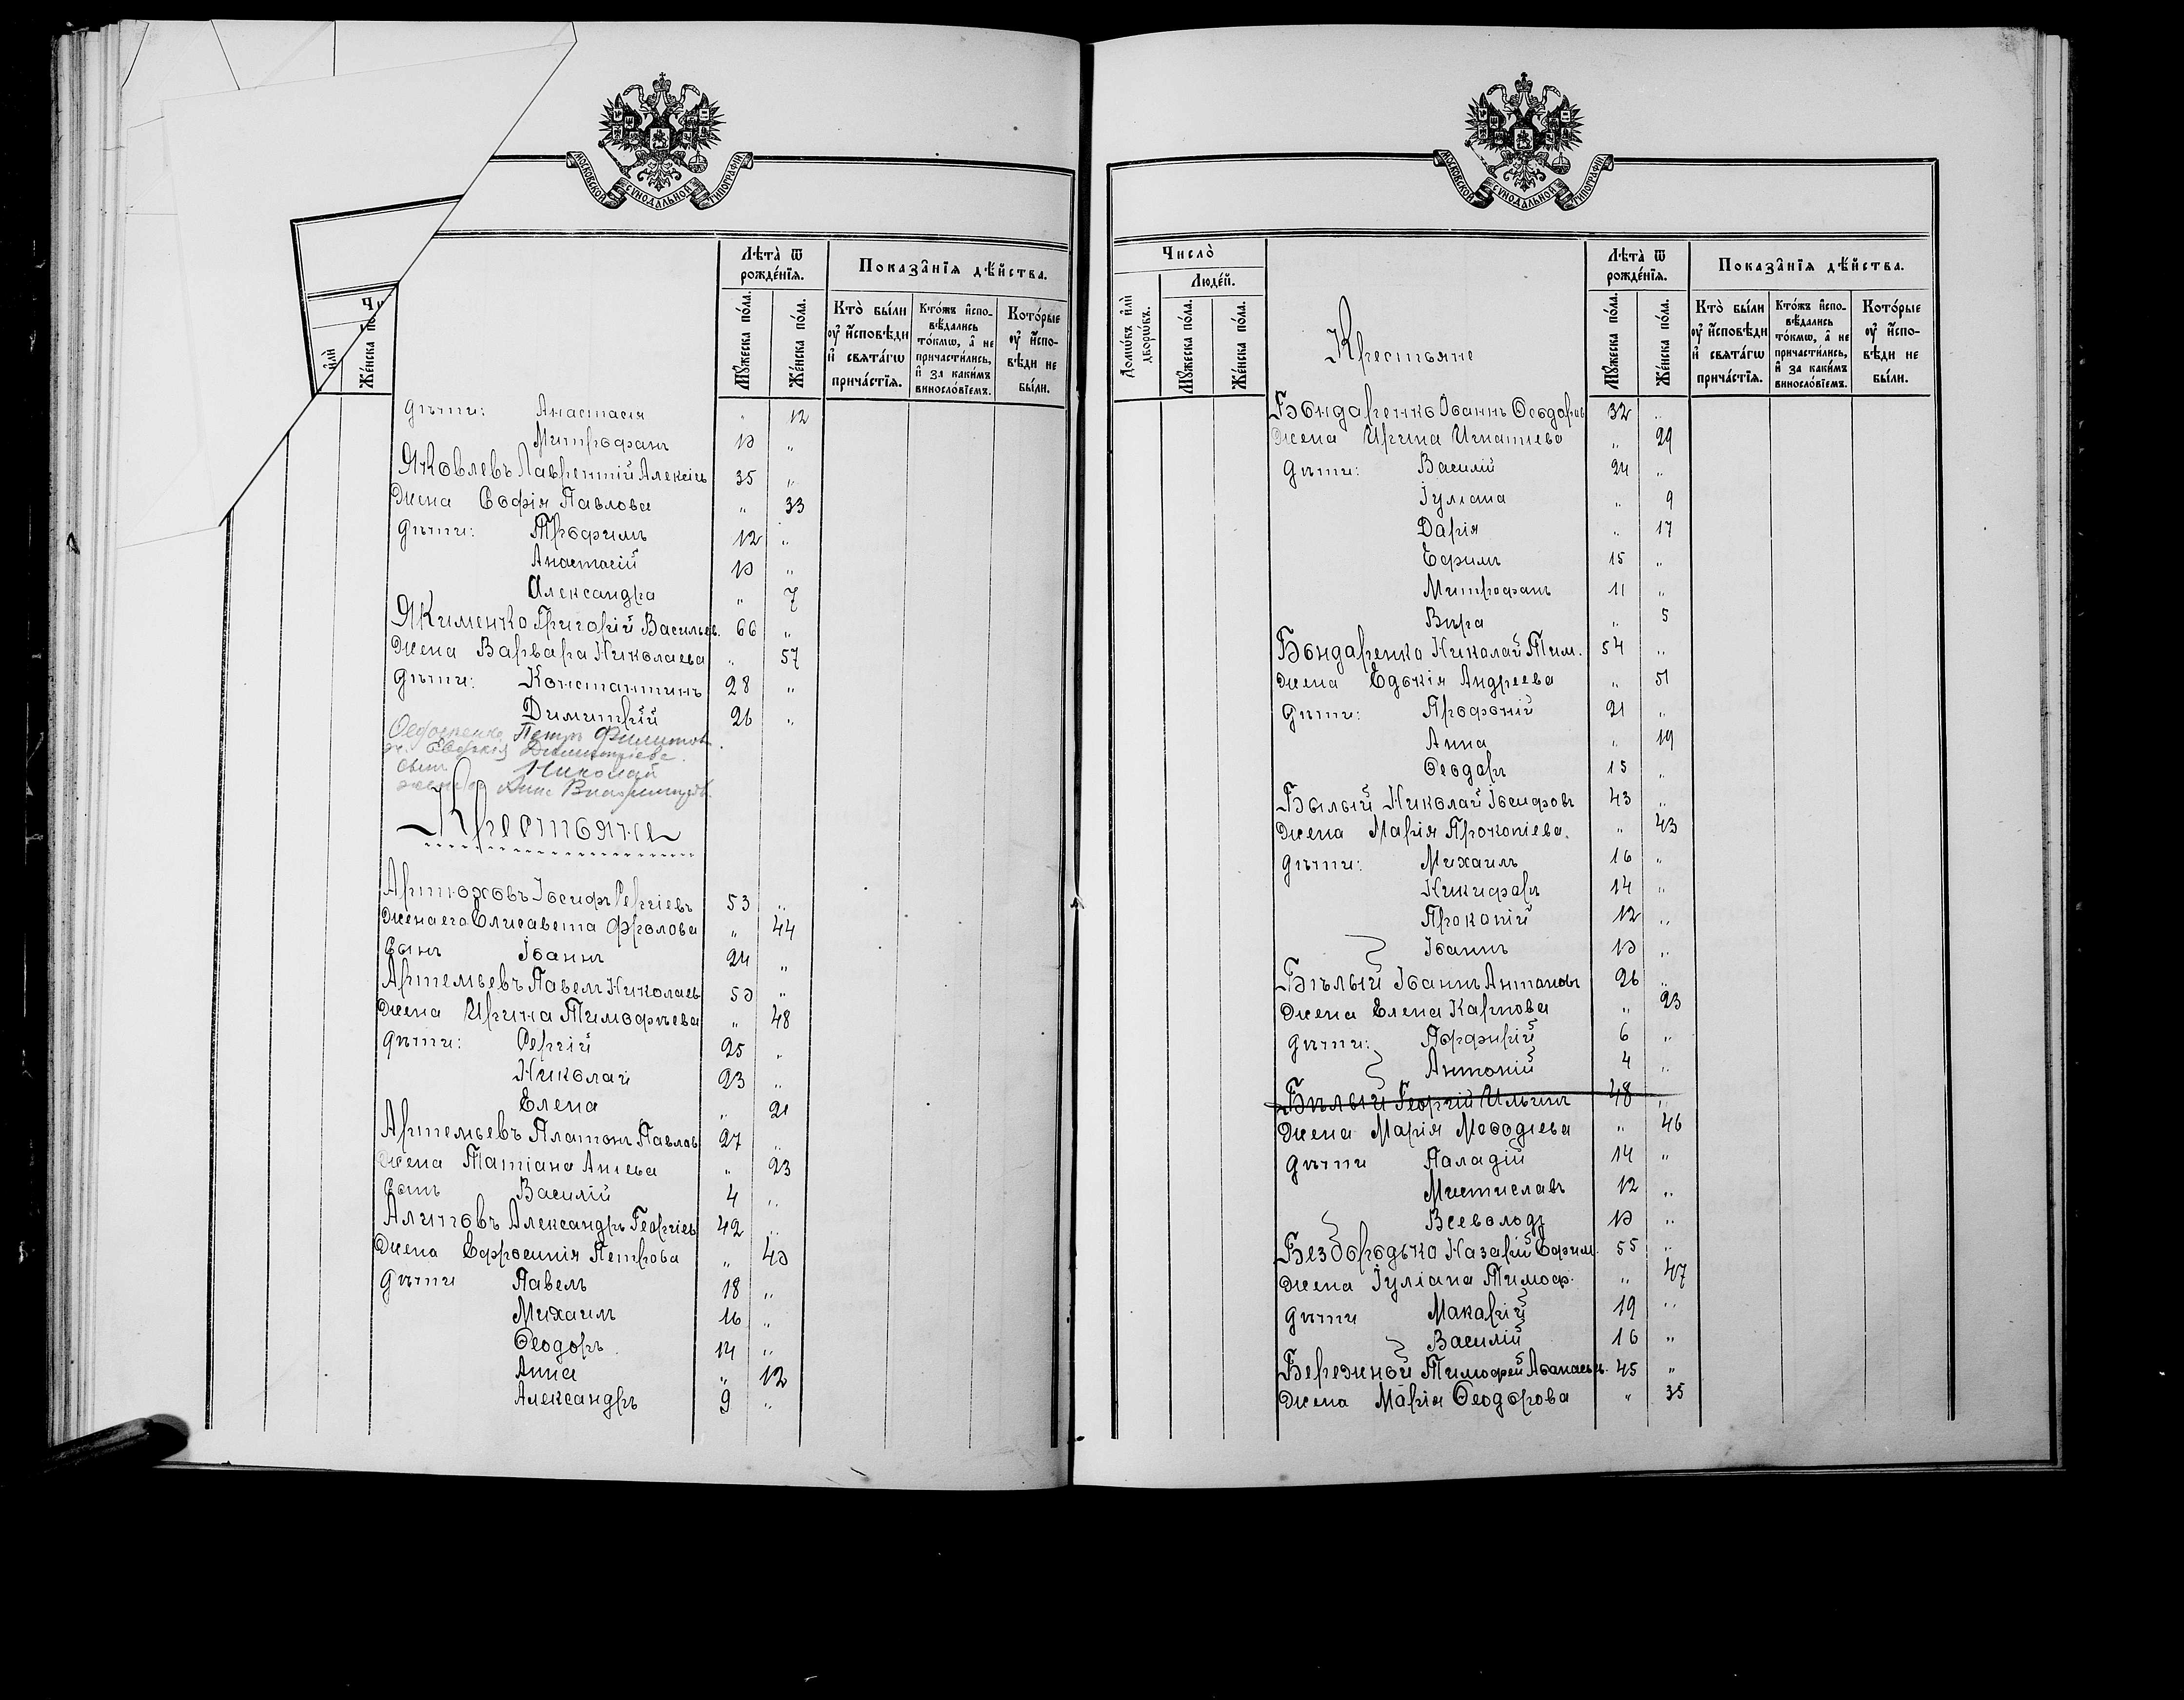 МОСКОВСКОЙ СУНОДАЛЬНОЙ ТИПОГРАФІИ
Лѣта̀ ѿ рожде́нїѧ.
Показа̂нїѧ дѣ́йства.
Мꙋ́жеска по́ла.
Же́нска по́ла.
Кто̀ бы́ли ᲂу҆ и҆́сповѣди и҆ свѧта́гѡ прича́стїѧ.
Кто́жъ и҆спо-
вѣ́дались
то́кмѡ, а҆ не
причасти́лись,
и҆ за каки́мъ
винословїемъ.
Кото́рые
ᲂу҆ и҆́спо-
вѣди не
бы́ли.
Же́нска по́
дѣти: Анастасія " 12
Митрофанъ 10 "
Яковлевъ Лаврентій Алексѣевъ 35 "
Жена Софія Павлова " 33
дѣти: Трофимъ 12 "
Анастасій 10 "
Александра " 7
Якименко Григорій Васильев. 66 "
Жена Варвара Николаева " 57
дѣти: Константинъ 28 "
Димитрій 26 "
Петръ Филипов
ж. Евдокія Димитріева
сынъ Николай
Анна
Крестьяне
Артюховъ Іосифъ Сергіевъ 53 "
Жена его Елисавета Фролова " 44
Сынъ Іоаннъ 24 "
Артемьевъ Павелъ Николаевъ 50 "
Жена Ирина Тимофѣева " 48
дѣти: Сергій 25 "
Николай 23 "
Елена " 21
Артемьевъ Платонъ Павлов 27 "
Жена Татіана " 23
Сынъ Василій 4 "
Александръ Георгіев 42 "
Жена Ефросинія Петрова " 40
дѣти Павелъ 18 "
Михаилъ 16 "
Ѳеодоръ 14 "
Анна " 12
Александръ 9 "
МОСКОВСКОЙ СУНОДАЛЬНОЙ ТИПОГРАФІИ
Число̀
Люде́й.
Домѡ́въ и҆лѝ дворѡ́въ.
Мꙋ́жеска по́ла.
Же́нска по́ла.
Крестьяне
Лѣта̀ ѿ рожде́нїѧ.
Показа̂нїѧ дѣ́йства.
Мꙋ́жеска по́ла.
Же́нска по́ла.
Кто̀ бы́ли ᲂу҆ и҆́сповѣди и҆ свѧта́гѡ прича́стїѧ.
Кто́жъ и҆спо-
вѣ́дались
то́кмѡ, а҆ не
причасти́лись,
и҆ за каки́мъ
винословїемъ.
Кото́рые
ᲂу҆ и҆́спо-
вѣди не
бы́ли.
Бондаренко Іоаннъ Ѳеодоров 32 "
Жена Ирина Игнатіева " 29
дѣти: Василій 24 "
Іуліана " 9
Дарія " 17
Ефимъ 15 "
Митрофанъ 11 "
Вѣра " 5
Бондаренко Николай Тим. 54 "
Жена Едокія Андреева " 51
дѣти: Профоній 21 "
Анна " 19
Ѳеодоръ 15 "
Бѣлый Николай Іосифовъ 43 "
Жена Марія Прокопіева. " 43
дѣти: Михаилъ 16 "
Никифоръ 14 "
Прокопій 12 "
Іоаннъ 10 "
Бѣлый Іоаннъ Антоновъ 26 "
Жена Елена Карпова " 23
дѣти: Порфирій 6 "
Антоній 4 "
Бѣлый Георгій Ильинъ 48 "
Жена Марія Меѳодіева " 46
дѣти Паладій 14 "
Мстиславъ 12 "
Всеволодъ 10 "
Безбородько Назарій Ефим. 55 "
Жена Іуліана Тимоф. " 47
дѣти Макарій 19 "
Василій 16 "
Бережной Тимофей Аѳанасьев. 45 "
Жена Марія Ѳеодорова " 35